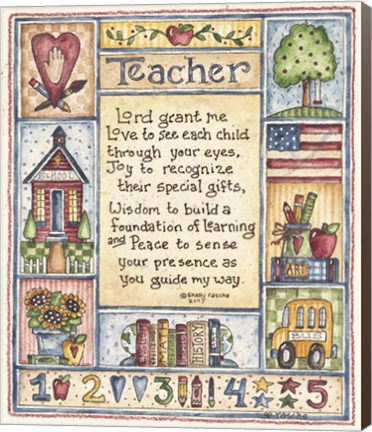 Teacher
Lord grant me
Love to see each child
through your eyes,
Joy to recognize
their special gifts,
Wisdom to build a
foundation of learning
and Peace to sense
your presence as
you guide my way.
SCHOOL
ABC
MATH
HISTORY
BUS
1 2 3 4 5